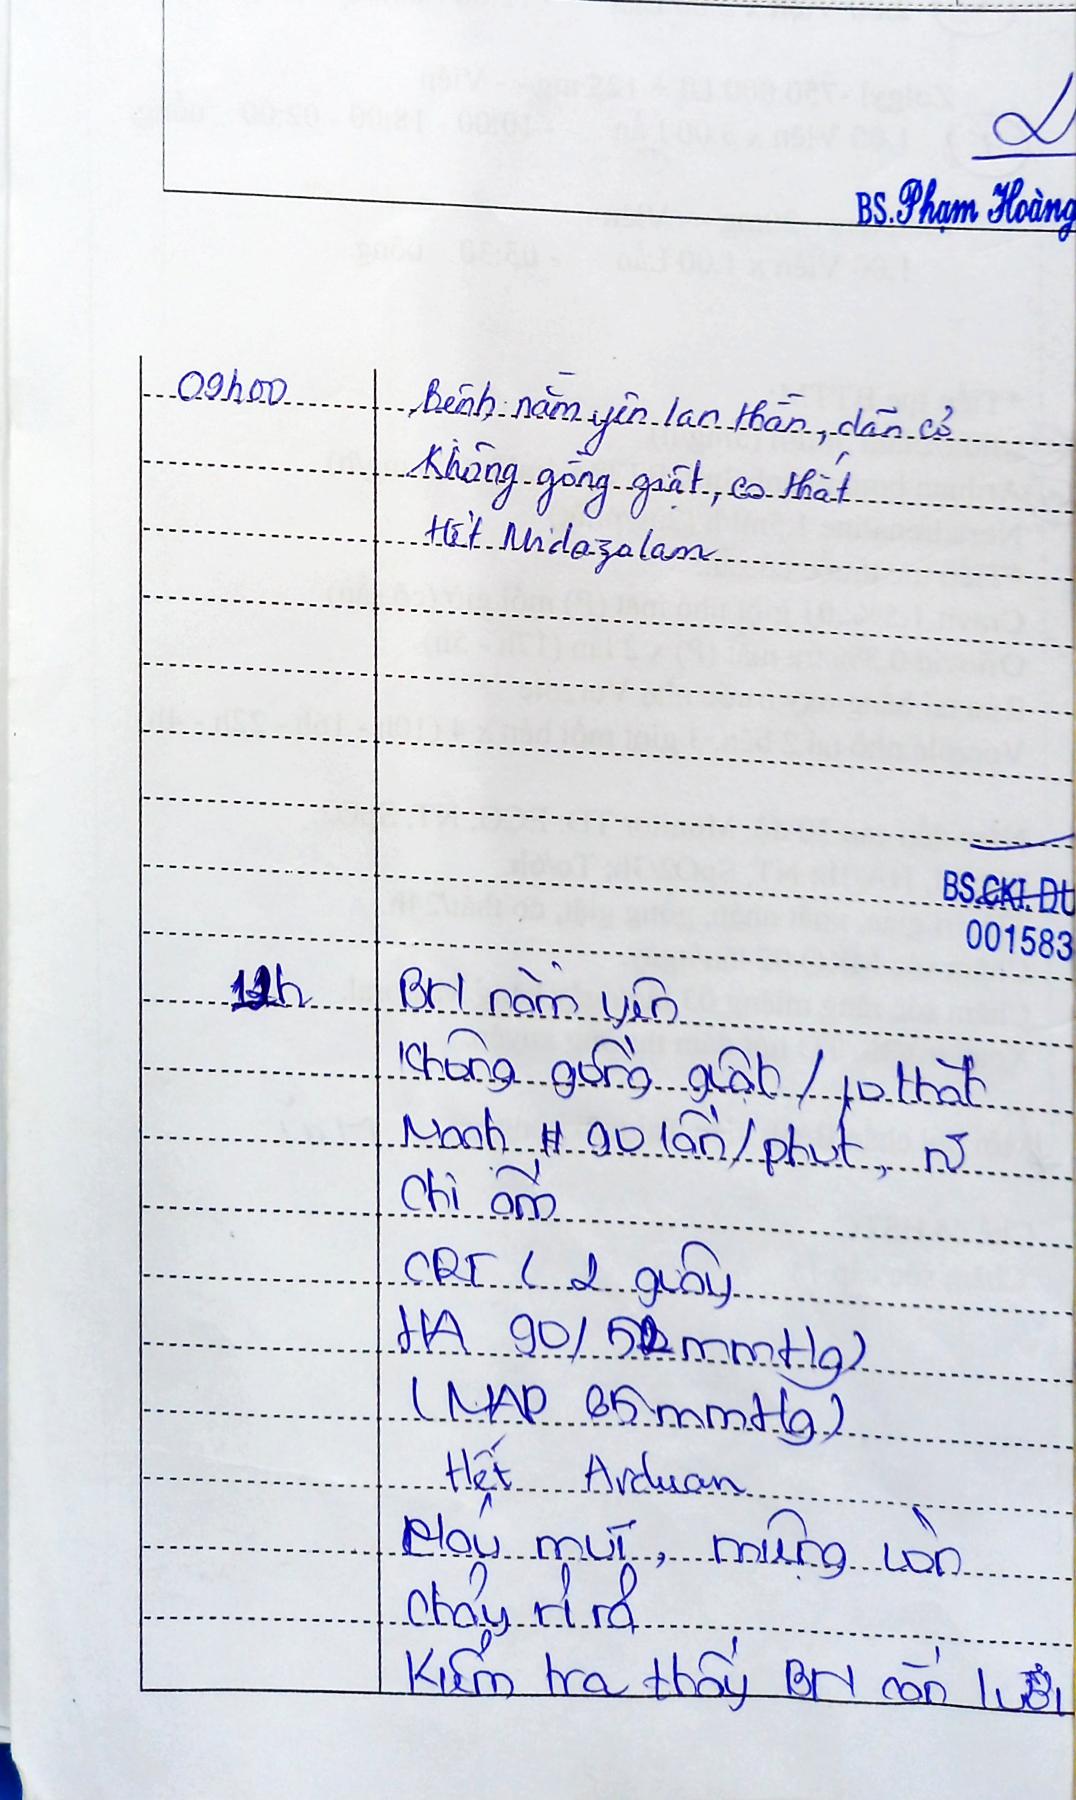 BS. Phạm Hoàng
09h00
Bệnh nằm yên lan thần, dãn cơ
Không gồng giật, co thắt
Hết Midazolam
BS.CKI.
001583
11h
BN nằm yên
Không gồng giật / co thắt
Mạch # 90 lần/phút, rõ
Chi ấm
CRT < 2 giây
HA 90/52 mmHg)
(MAP 65 mmHg)
Hết Arduan
mũi, miệng còn
chảy rỉ rả
Kiểm tra thấy BN cắn lưỡi